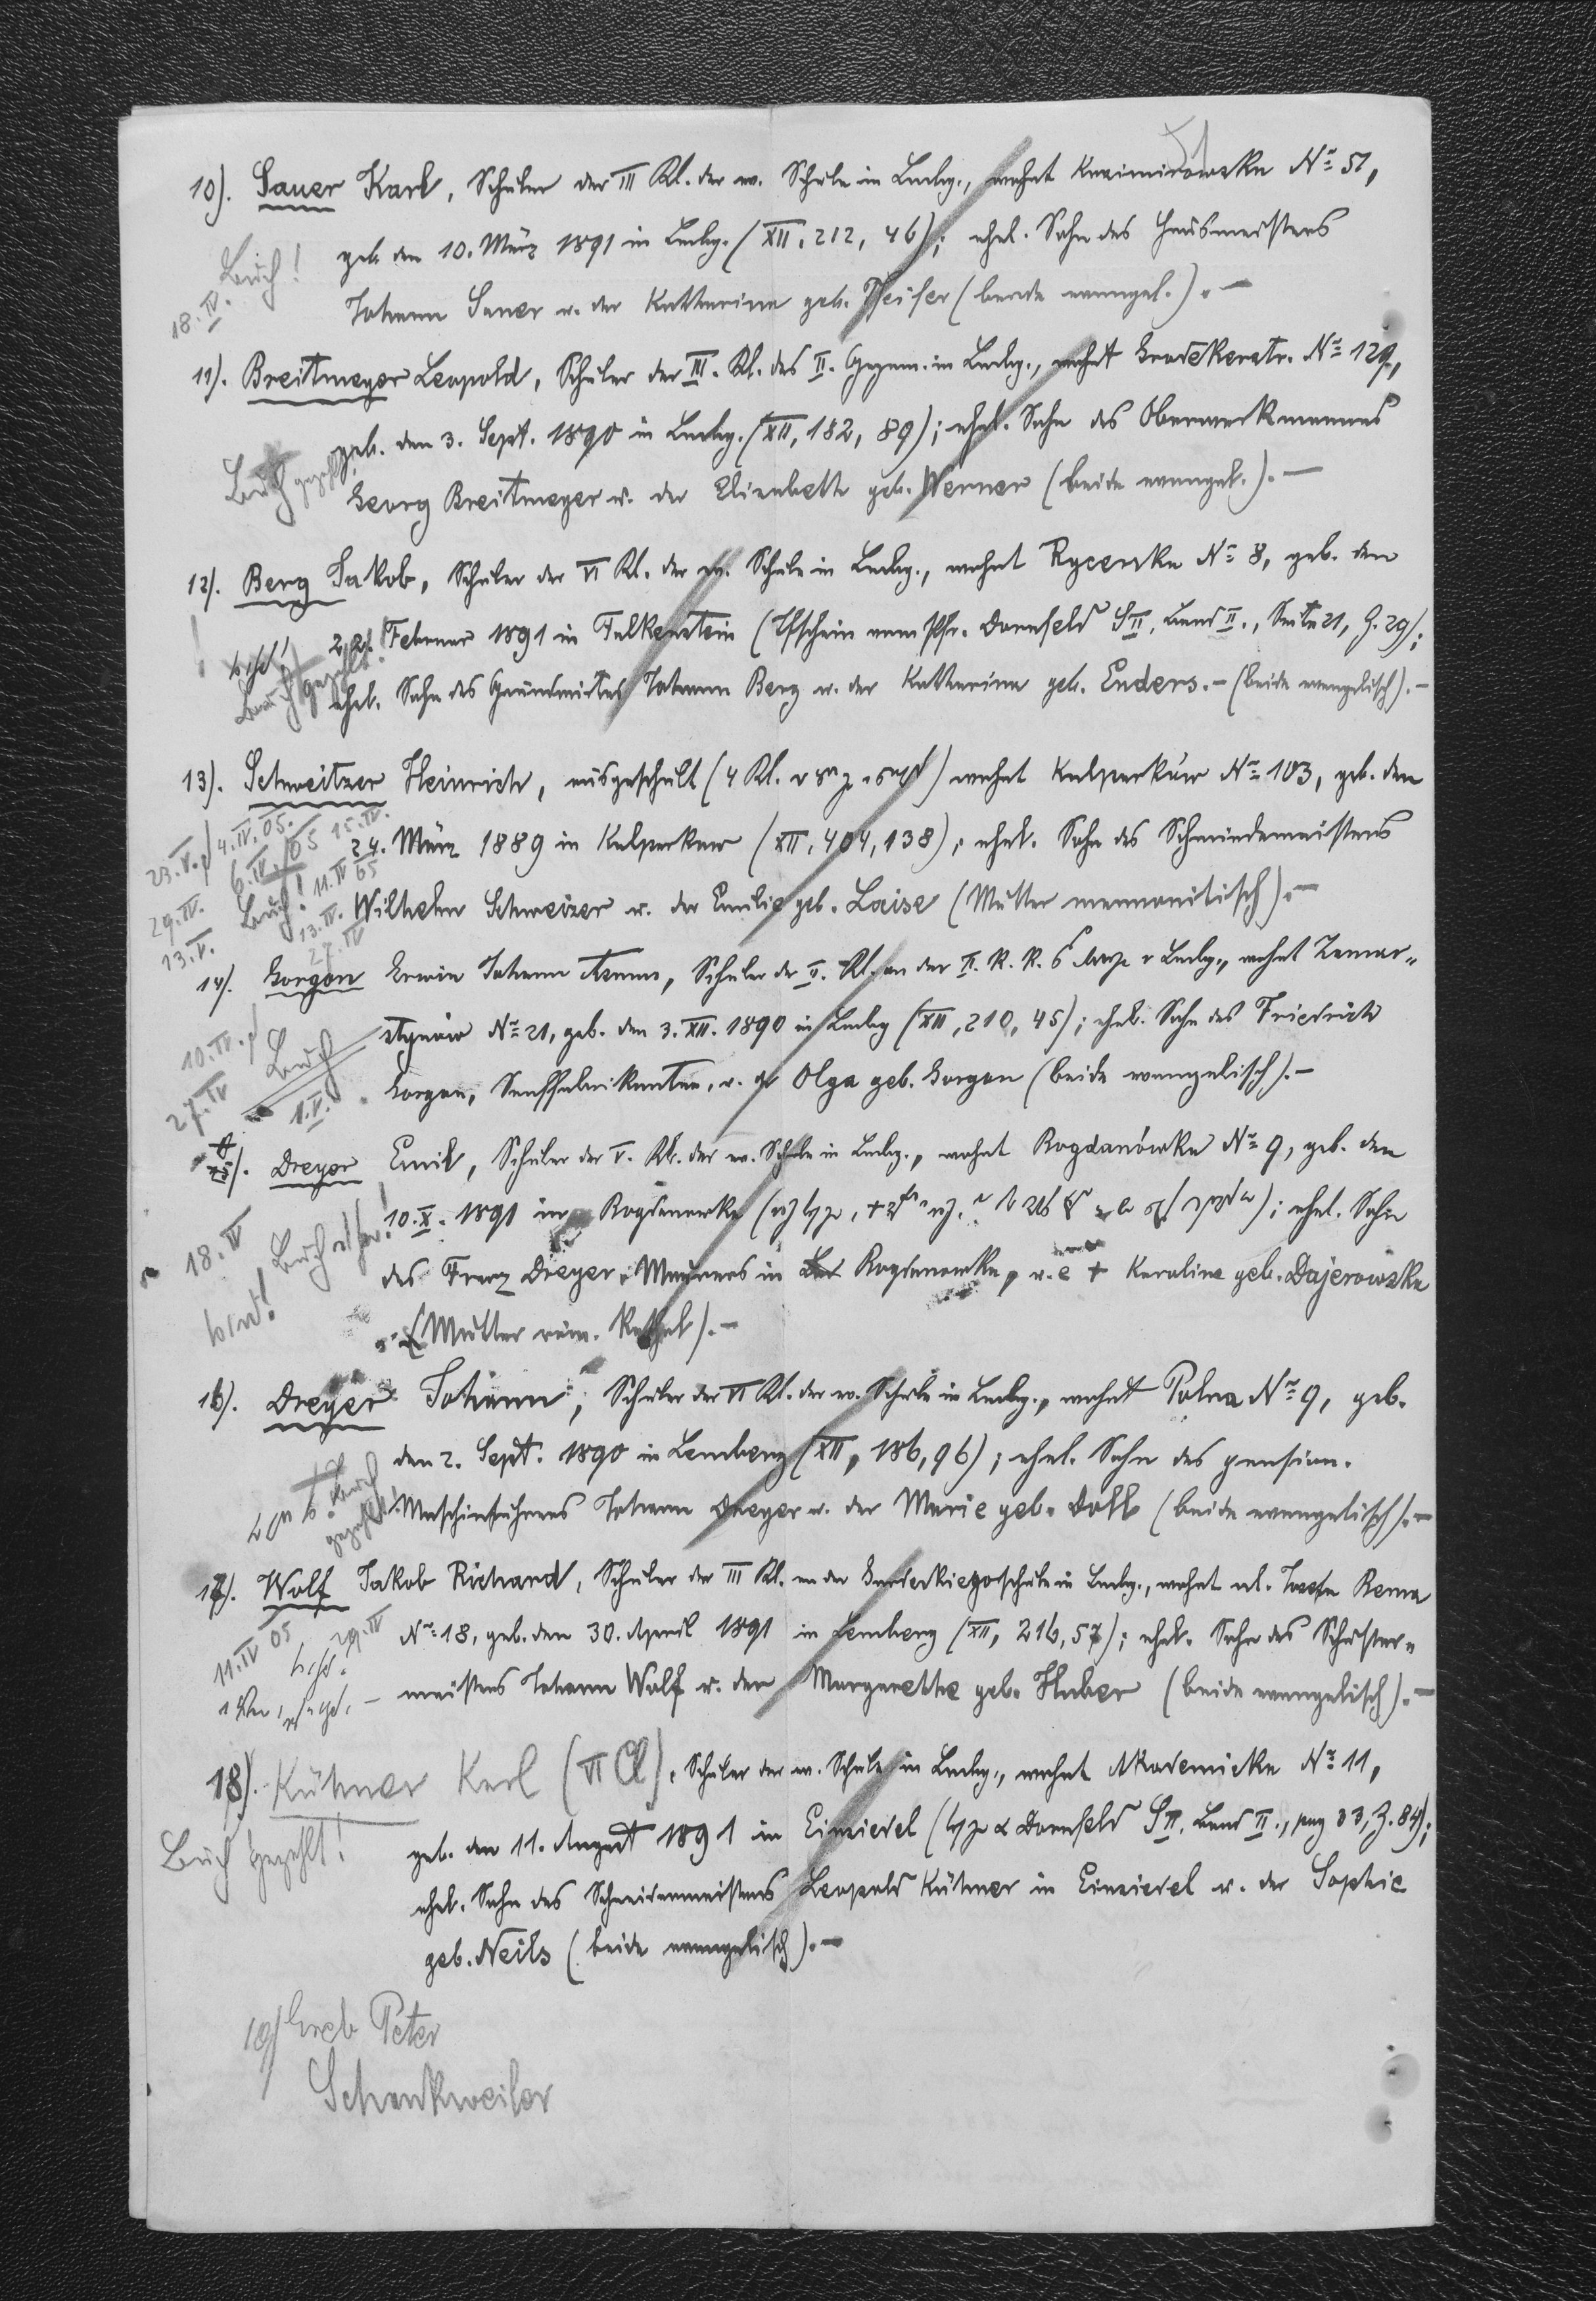 51
10). Sauer Karl, Schüler der III Kl. der ev. Schule in Lembg., wohnt Kazimirowska Nr. 51,
geb. den 10. März 1891 in Lembg. (XII, 212, 46); ehel. Sohn des Hausmeisters
Buch!
18. IV.
Johann Sauer u. der Katharina geb. Pfeifer (beide evangel.). –
11). Breitmeyer Leopold, Schüler der III. Kl. des II. Gymn. in Lembg., wohnt Grodekerstr. Nr. 129,
geb. den 3. Sept. 1890 in Lembg. (XII, 182, 89); ehel. Sohn des Oberwerkmannes
Buch gezahlt
Georg Breitmeyer u. der Elisabeth geb. Werner (beide evangel.). –
12). Berg Jakob, Schüler der VI Kl. der ev. Schule in Lembg., wohnt Rycerska Nr. 8, geb. den
22. Februar 1891 in Falkenstein (Tfschein vom Pfr. Dornfeld S II, Band II., Seite 21, Z. 29);
Buch gezahlt!
ehel. Sohn des Grundwirtes Johann Berg u. der Katharina geb. Enders. – (beide evangelisch). –
13). Schweitzer Heinrich, ausgeschult (4 Kl.) wohnt Kulparków Nr. 103, geb. den
23. V. 4. IV. 05. 15. IV.
24. März 1889 in Kulparkow (XII, 404, 138); ehel. Sohn des Schmiedemeisters
29. IV. 6. IV. 05 Buch! 11. IV 05
Wilhelm Schweizer u. der Emilie geb. Laise (Mutter mennonitisch). –
13. V. 13. IV. 27. IV
14). Gorgon Erwin Johann, Schüler der II. Kl. an der II. K. K. Lembg., wohnt Zamar-
stynów Nr. 21, geb. den 3. XII. 1890 in Lembg (XII, 210, 45); ehel. Sohn des Friedrich
10. IV. Buch
27. IV 1. V.
Gorgon, Senffabrikanten, u. der Olga geb. Gorgon (beide evangelisch). –
15). Dreyer Emil, Schüler der V. Kl. der ev. Schule in Lembg., wohnt Bogdanówka Nr. 9, geb. den
10. X. 1891 in Bogdanowka; ehel. Sohn
18. IV Buch
des Franz Dreyer, Maurers in Bogdanowka, u. + Karolina geb. Dajerowska
(Mutter röm. Kathol.). –
16). Dreyer Johann, Schüler der VI Kl. der ev. Schule in Lembg., wohnt Polna Nr. 9, geb.
den 2. Sept. 1890 in Lemberg (XII, 186, 96); ehel. Sohn des pension.
Buch gezahlt!
Maschinführers Johann Dreyer u. der Marie geb. Doll (beide evangelisch). –
17). Wolf Jakob Richard, Schüler der III Kl. an der schule in Lembg., wohnt ul. Józefa Bema
11. IV 05 29. IV
Nr. 18, geb. den 30. April 1891 in Lemberg (XII, 216, 57); ehel. Sohn des Schuster-
meisters Johann Wolf u. der Margarethe geb. Huber (beide evangelisch). –
18). Kühner Karl (VI Cl), Schüler der ev. Schule in Lembg., wohnt Akademicka Nr. 11,
Buch gezahlt!
geb. den 11. August 1891 in Einsiedel (Dornfeld S II. Band II., pag 33, Z. 84);
ehel. Sohn des Schneidermeisters Leopold Kühner in Einsiedel u. der Sophie
geb. Neils (beide evangelisch). –
19) Greb Peter
Schenkweiler